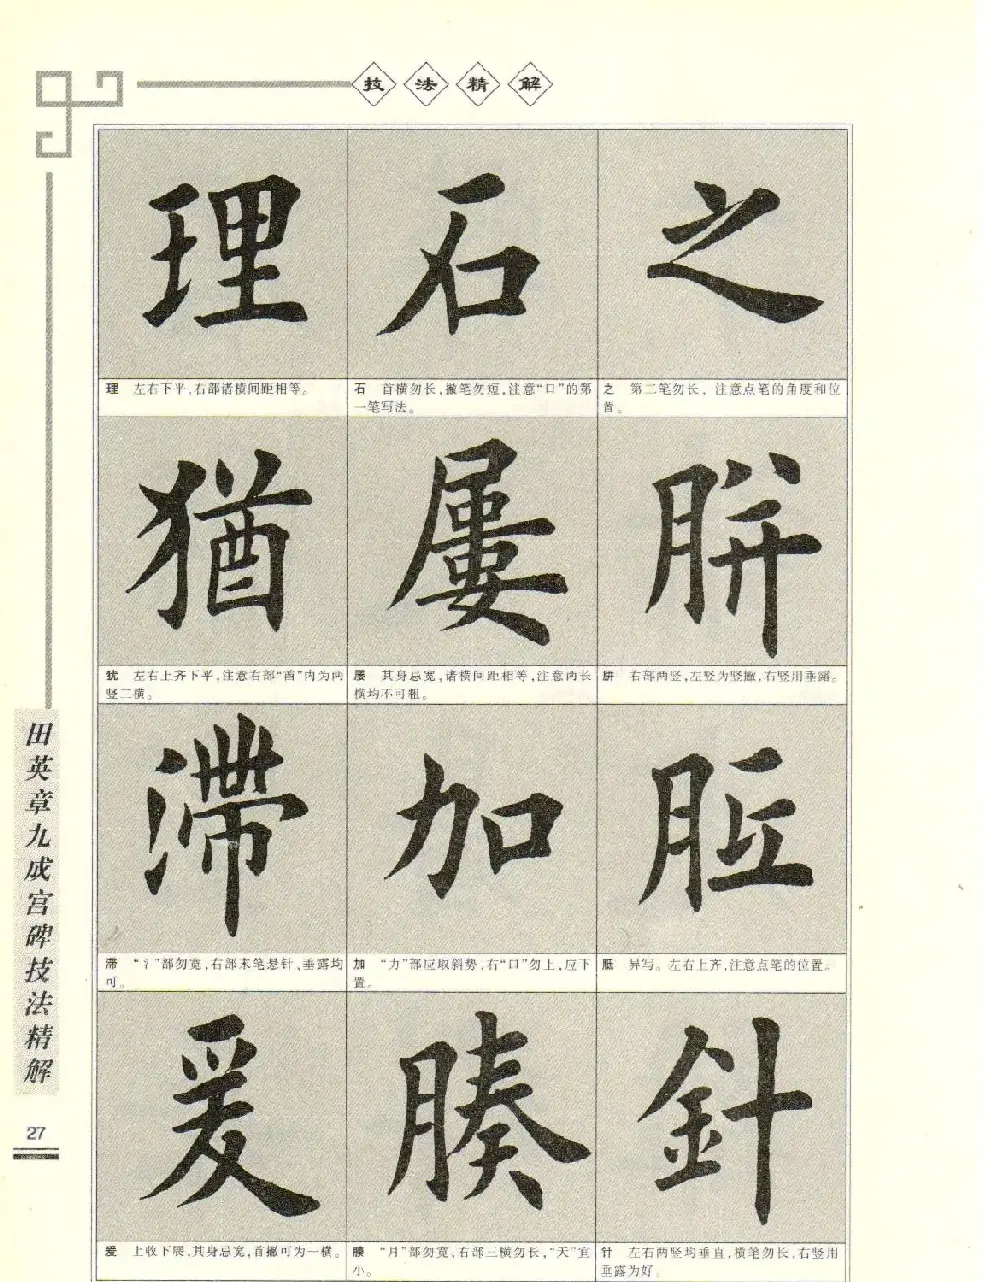 技法精解
理
石
之
理 左右下平,右部诸横间距相等。
石 首横勿长,撇笔勿短,注意“口”的第
一笔写法。
之 第二笔勿长,注意点笔的角度和位
置。
猶
屢
胼
犹 左右上齐下平,注意右部“酋”内为两
竖二横。
屡 其身忌宽,诸横间距相等,注意内长
横均不可粗。
胼 右部两竖,左竖为竖撇,右竖用垂露。
滯
加
胝
滞 “氵”部勿宽,右部末笔悬针、垂露均
可。
加 “力”部应取斜势,右“口”勿上,应下
置。
胝 异写。左右上齐,注意点笔的位置。
爰
腠
針
爰 上收下展,其身忌宽,首撇可为一横。
腠 “月”部勿宽,右部三横勿长,“天”宜
小。
针 左右两竖均垂直,横笔勿长,右竖用
垂露为好。
田英章九成宫碑技法精解
27